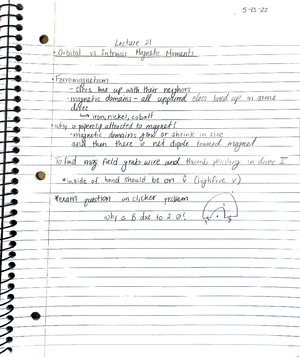 5-13-22
Lecture 21
• Orbital vs Intrinsic Magnetic Moments
• Ferromagnetism
- Elecs line up with their neighbors
- magnetic domains - all unpaired elecs lined up in same
direc
↳ iron, nickel, cobalt
• why is paperclip attracted to magnet?
- magnetic domains grow or shrink in size
and then there is net dipole toward magnet
To find mag field grab wire and thumb pointing in direc I
*inside of hand should be on (highfive v)
*exam question on clicker problem
why is B due to 2 0?